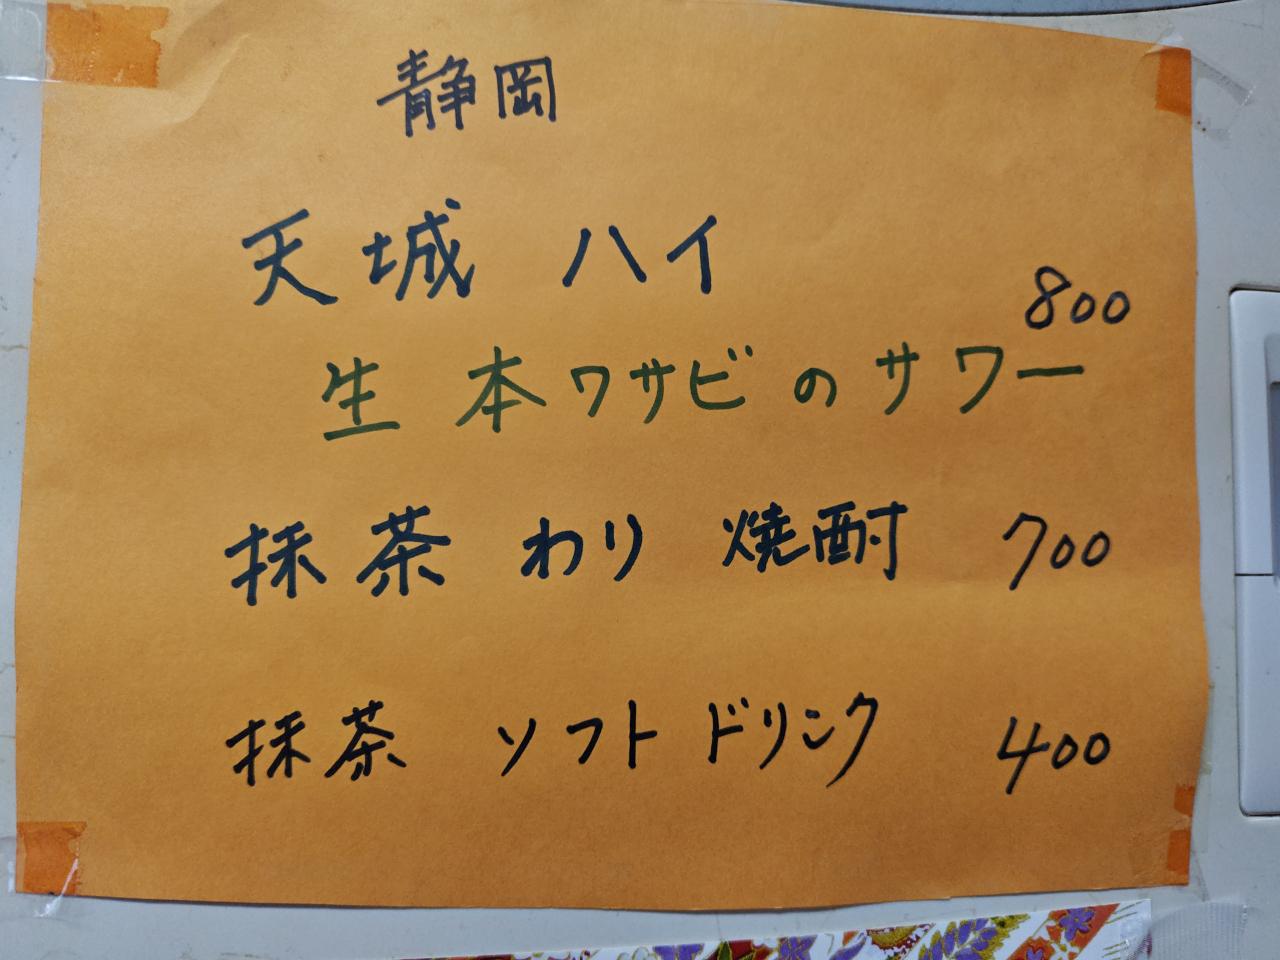 静岡
天城 ハイ 800
生 本ワサビ の サワー
抹茶 わり 焼酎 700
抹茶 ソフト ドリンク 400